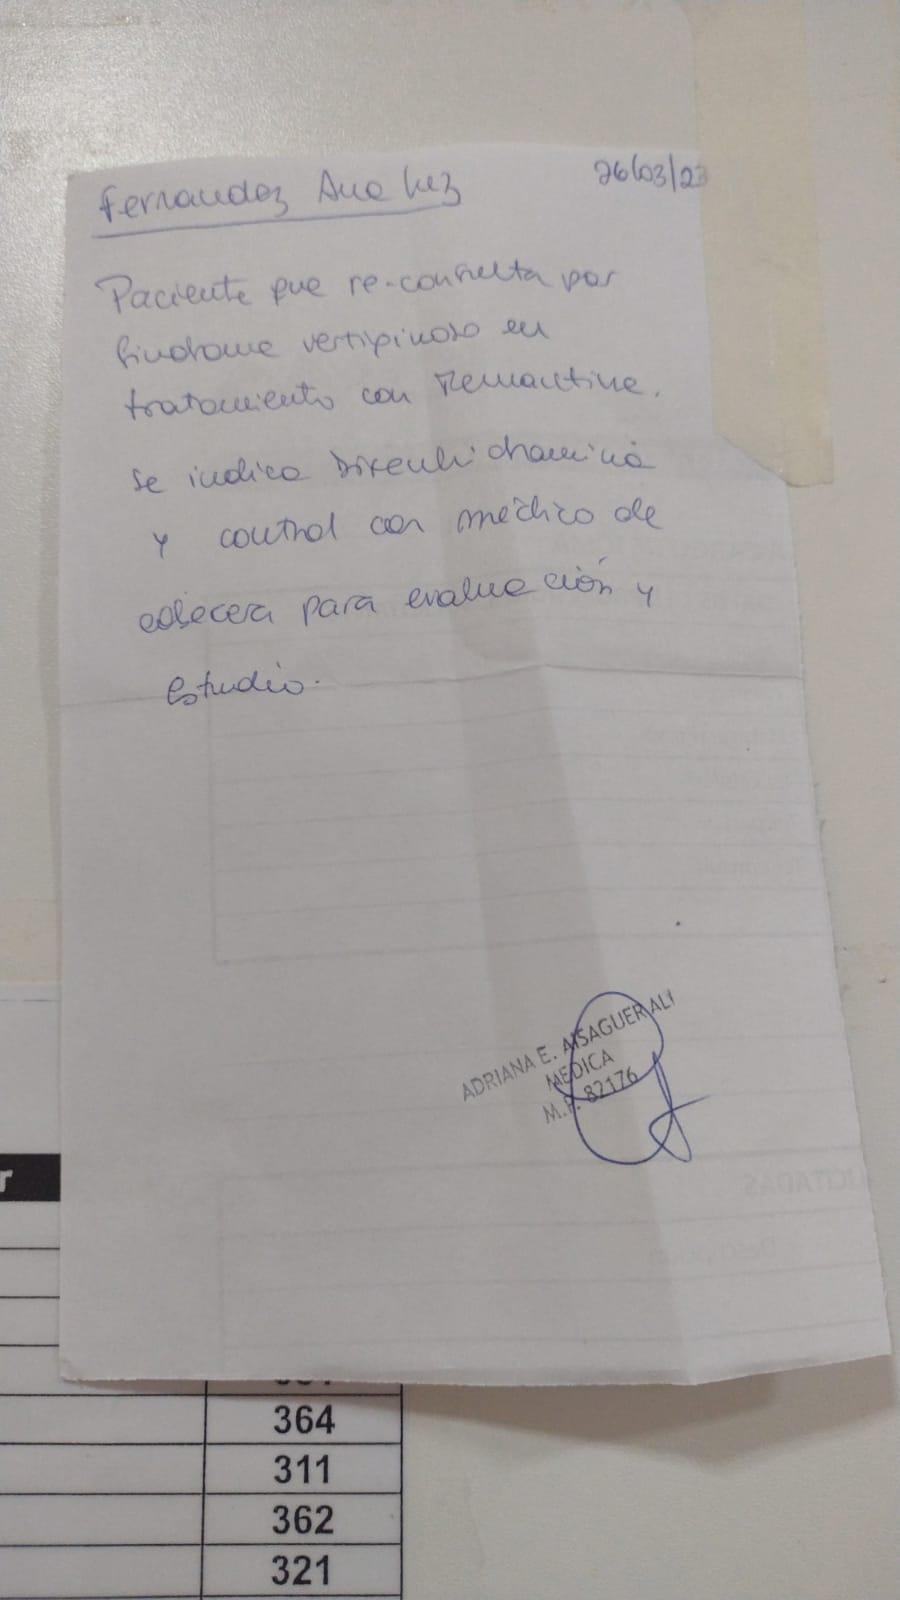 Fernandez Ana Luz
26/03/23
Paciente que re-consulta por
Sindrome vertiginoso en
tratamiento con
Se indica
y control con médico de
cabecera para evaluación y
estudio.
ADRIANA E. AISAGUER ALI
MEDICA
M.P. 82176
r
364
311
362
321